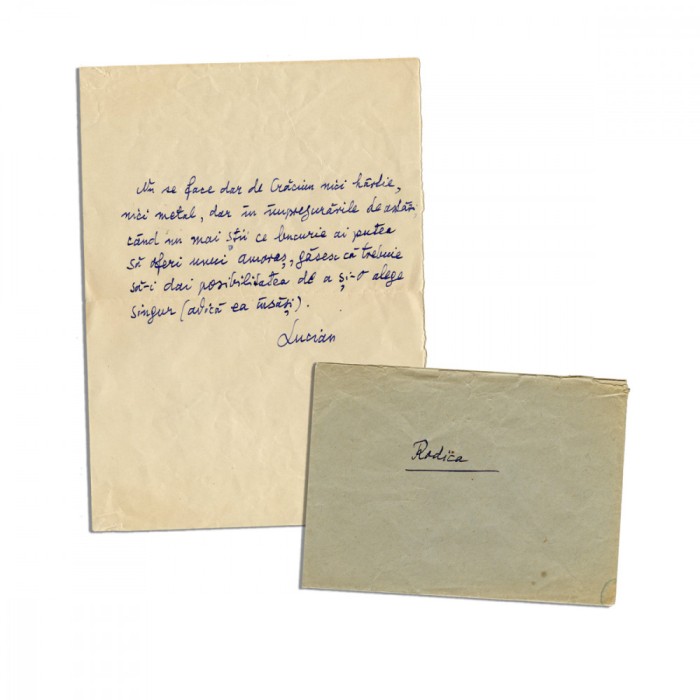 Nu se face dar de Crăciun nici hârtie,
nici metal, dar în împregurările de astăzi
când nu mai știi ce bucurie ai putea
să oferi unui amoreș, găsesc că trebuie
să-i dai posibilitatea de a și-o alege
singur (adică ea însăși).
Lucian
Rodica